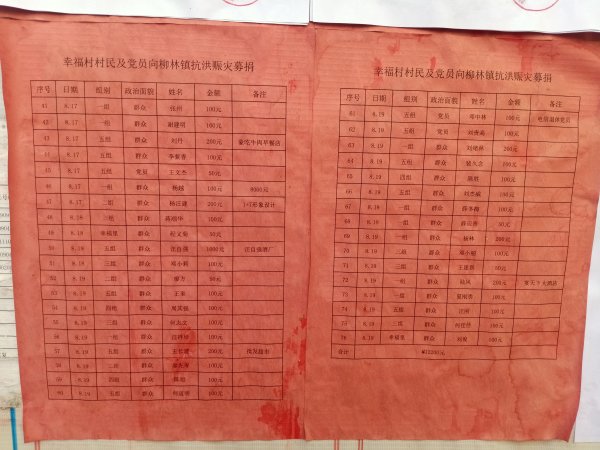 幸福村村民及党员向柳林镇抗洪赈灾募捐
序号 日期 组别 政治面貌 姓名 金额 备注
41 8.17 一组 群众 张州 100元
42 8.17 二组 群众 谢建明 100元
43 8.17 五组 群众 刘丹 200元 豪吃牛肉早餐店
44 8.17 五组 群众 李素香 100元
45 8.17 五组 党员 王文杰 50元
46 8.17 一组 群众 杨越 100元 8000元
47 8.17 二组 群众 杨汪健 200元 1+7形象设计
48 8.18 三组 群众 蒋雄华 100元
49 8.19 幸福里 群众 程义菊 50元
50 8.19 五组 群众 汪自强 1000元 汪自强酒厂
51 8.19 三组 群众 邓小莉 100元
52 8.19 二组 群众 廖方 50元
53 8.19 五组 群众 王来 100元
54 8.19 四组 群众 周其强 100元
55 8.19 三组 群众 何志文 100元
56 8.19 一组 群众 100元
57 8.19 五组 群众 200元 批发超市
58 8.19 二组 群众 100元
59 8.19 四组 群众 100元
60 8.19 五组 群众 何道明 100元
幸福村村民及党员向柳林镇抗洪赈灾募捐
序号 日期 组别 政治面貌 姓名 金额 备注
61 8.19 五组 党员 邓中林 100元 电信退休党员
62 8.19 五组 党员 刘贵禹 100元
63 8.19 一组 群众 刘绪林 200元
64 8.19 五组 群众 裴久念 100元
65 8.19 四组 群众 陈胜 100元
66 8.19 五组 群众 刘杰威 100元
67 8.19 一组 群众 薛冬梅 100元
68 8.19 一组 群众 薛应喜 50元
69 8.19 一组 群众 杨林 200元
70 8.19 三组 群众 邓小明 100元
71 8.19 三组 群众 王连恩 50元
72 8.19 五组 群众 陆凤 200元
73 8.19 一组 群众 100元
74 8.19 五组 群众 汪刚 100元
75 8.19 三组 群众 何仕传 100元
76 8.19 幸福里 群众 刘俊 100元
合计 ¥12200元